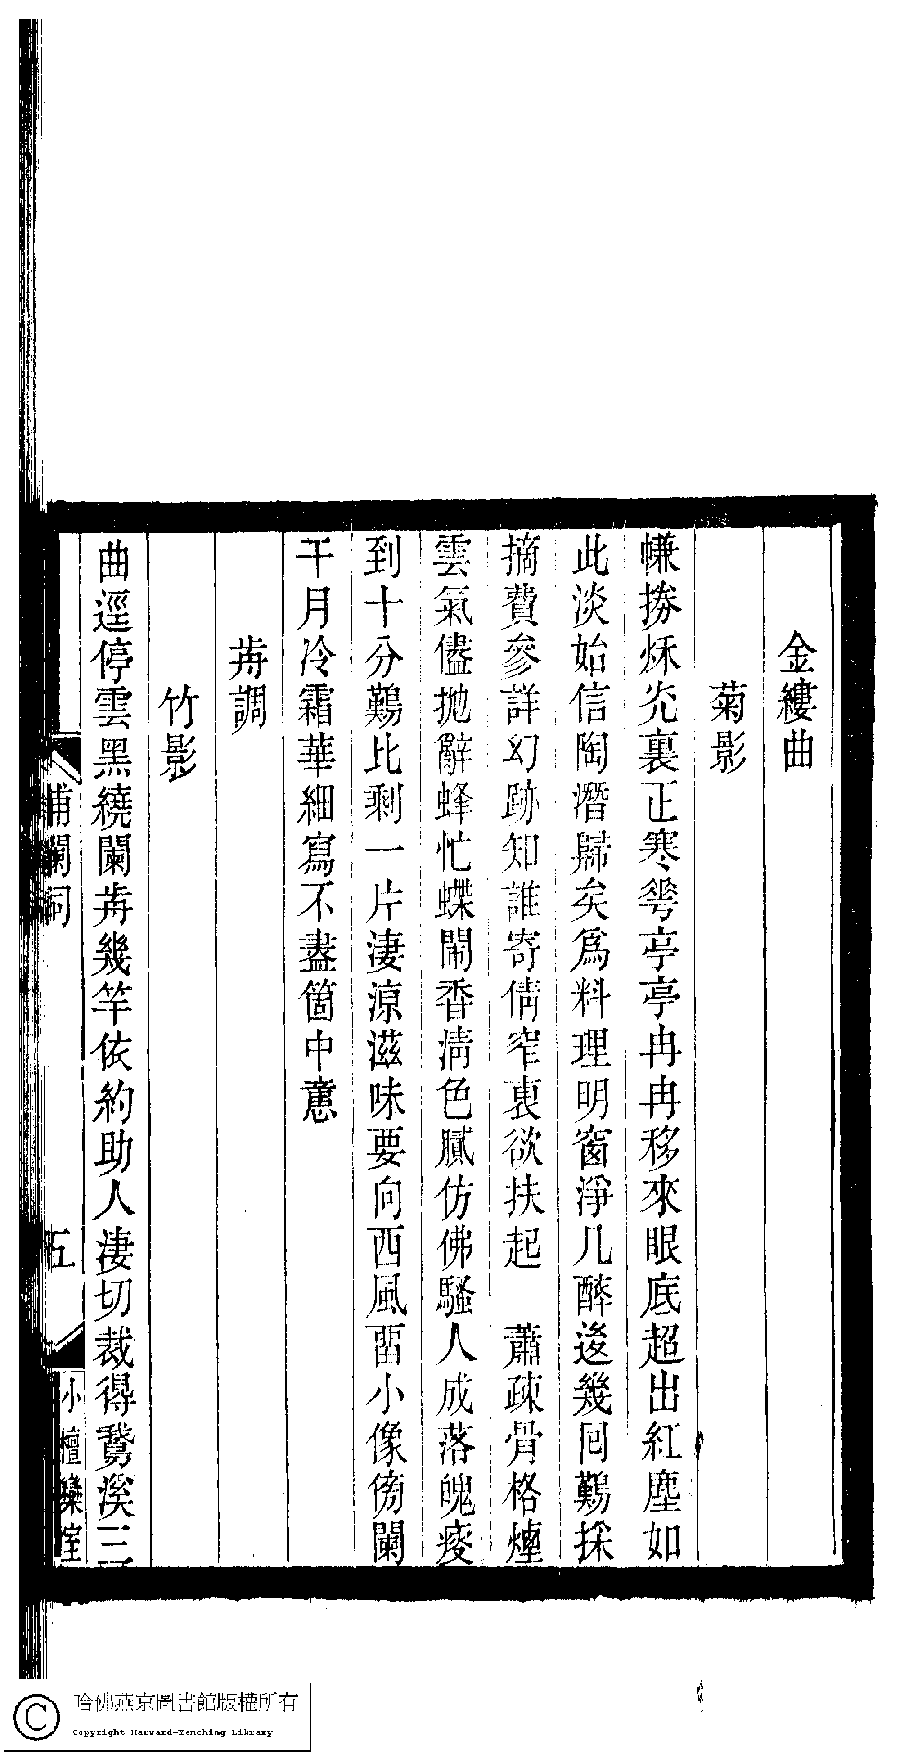 金縷曲
菊影
㡘捲秌光裏正寒蕚亭亭冉冉移來眼底超出紅塵如
此淡始信陶潛歸矣爲料理明窗淨几醉後幾回鷬採
摘費參詳幻跡知誰寄倩窄裏欲扶起　蕭疎骨格煙
雲氣儘拋辭蜂忙蝶鬧香淸色膩仿佛騷人成落魄痠
到十分鷬比剩一片淒涼滋味要向西風畱小像傍闌
干月冷霜華細寫不盡箇中意
歬調
竹影
曲逕停雲黑繞闌歬幾竿依約助人淒切裁得鵞溪三
闌詞
五
小檀欒室
哈佛燕京圖書館版權所有
Copyright Harvard-Yenching Library